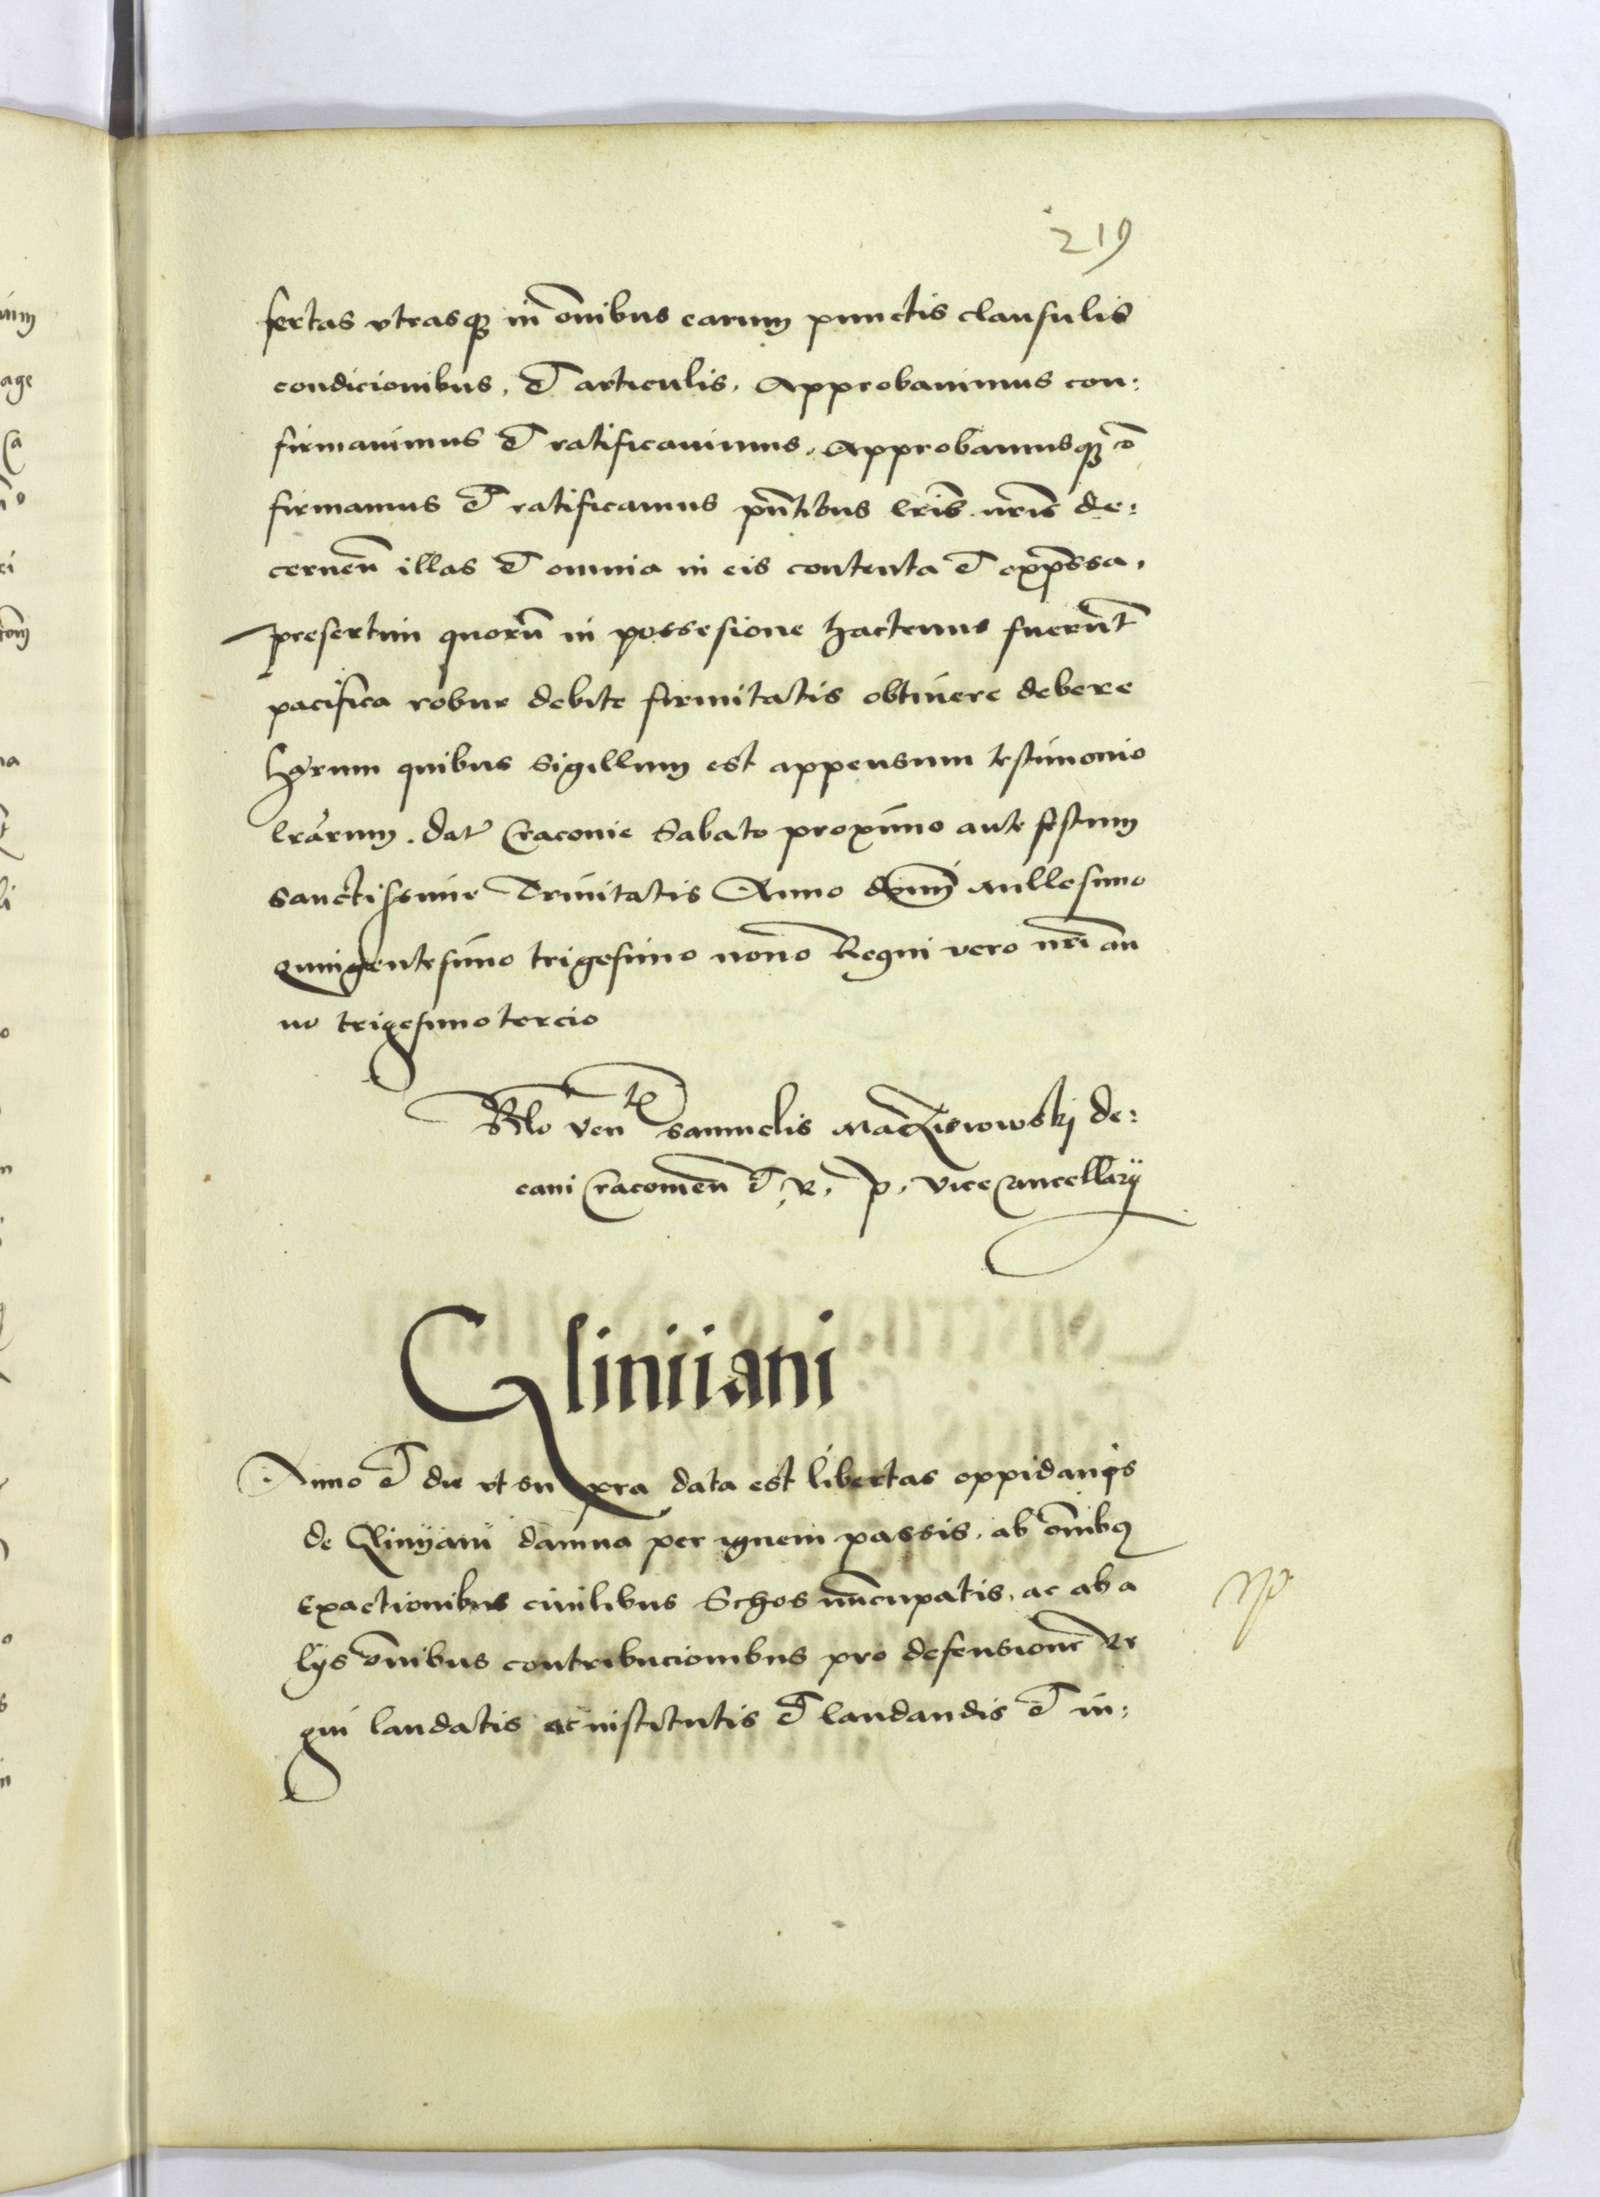 219
sertas vtrasq₃ in o͞nibus earum punctis clausulis
condicionibus, et articulis, Approbauimus con:
firmauimus et ratificauimus, Approbamusq₃ co͞
firmamus et ratificamus pn͞tibus lr͞is nr͞is de:
cernen͞ illas et omnia in eis contenta et exp͞ssa,
presertim quoru͞ in possesione hactenus fueru͞t
pacifica robur debite firmitatis obtinere debere
harum quibus Sigillum est appensum testimonio
lr͞arum. dat͞ Cracouie Sabato proximo ante festum
sanctissime Trinitatis Anno d͞ni millesimo
quingentesimo trigesimo nono Regni vero nr͞i an
no trigesimo tercio
Rlo ven^te Samuelis Maczieiowskj de:
cani Cracouien͞ et, R, p, vice Cancellarij
Gliniiani
Anno et die vt supra data est libertas oppidanis
de Glinijani damna per ignem passis, ab o͞nibq
Exactionibus ciuilibus Schos nu͞cupatis, ac ab a
lijs o͞nibus contribucionibus pro defensione Re
gni laudatis ac institutis et laudandis et in: